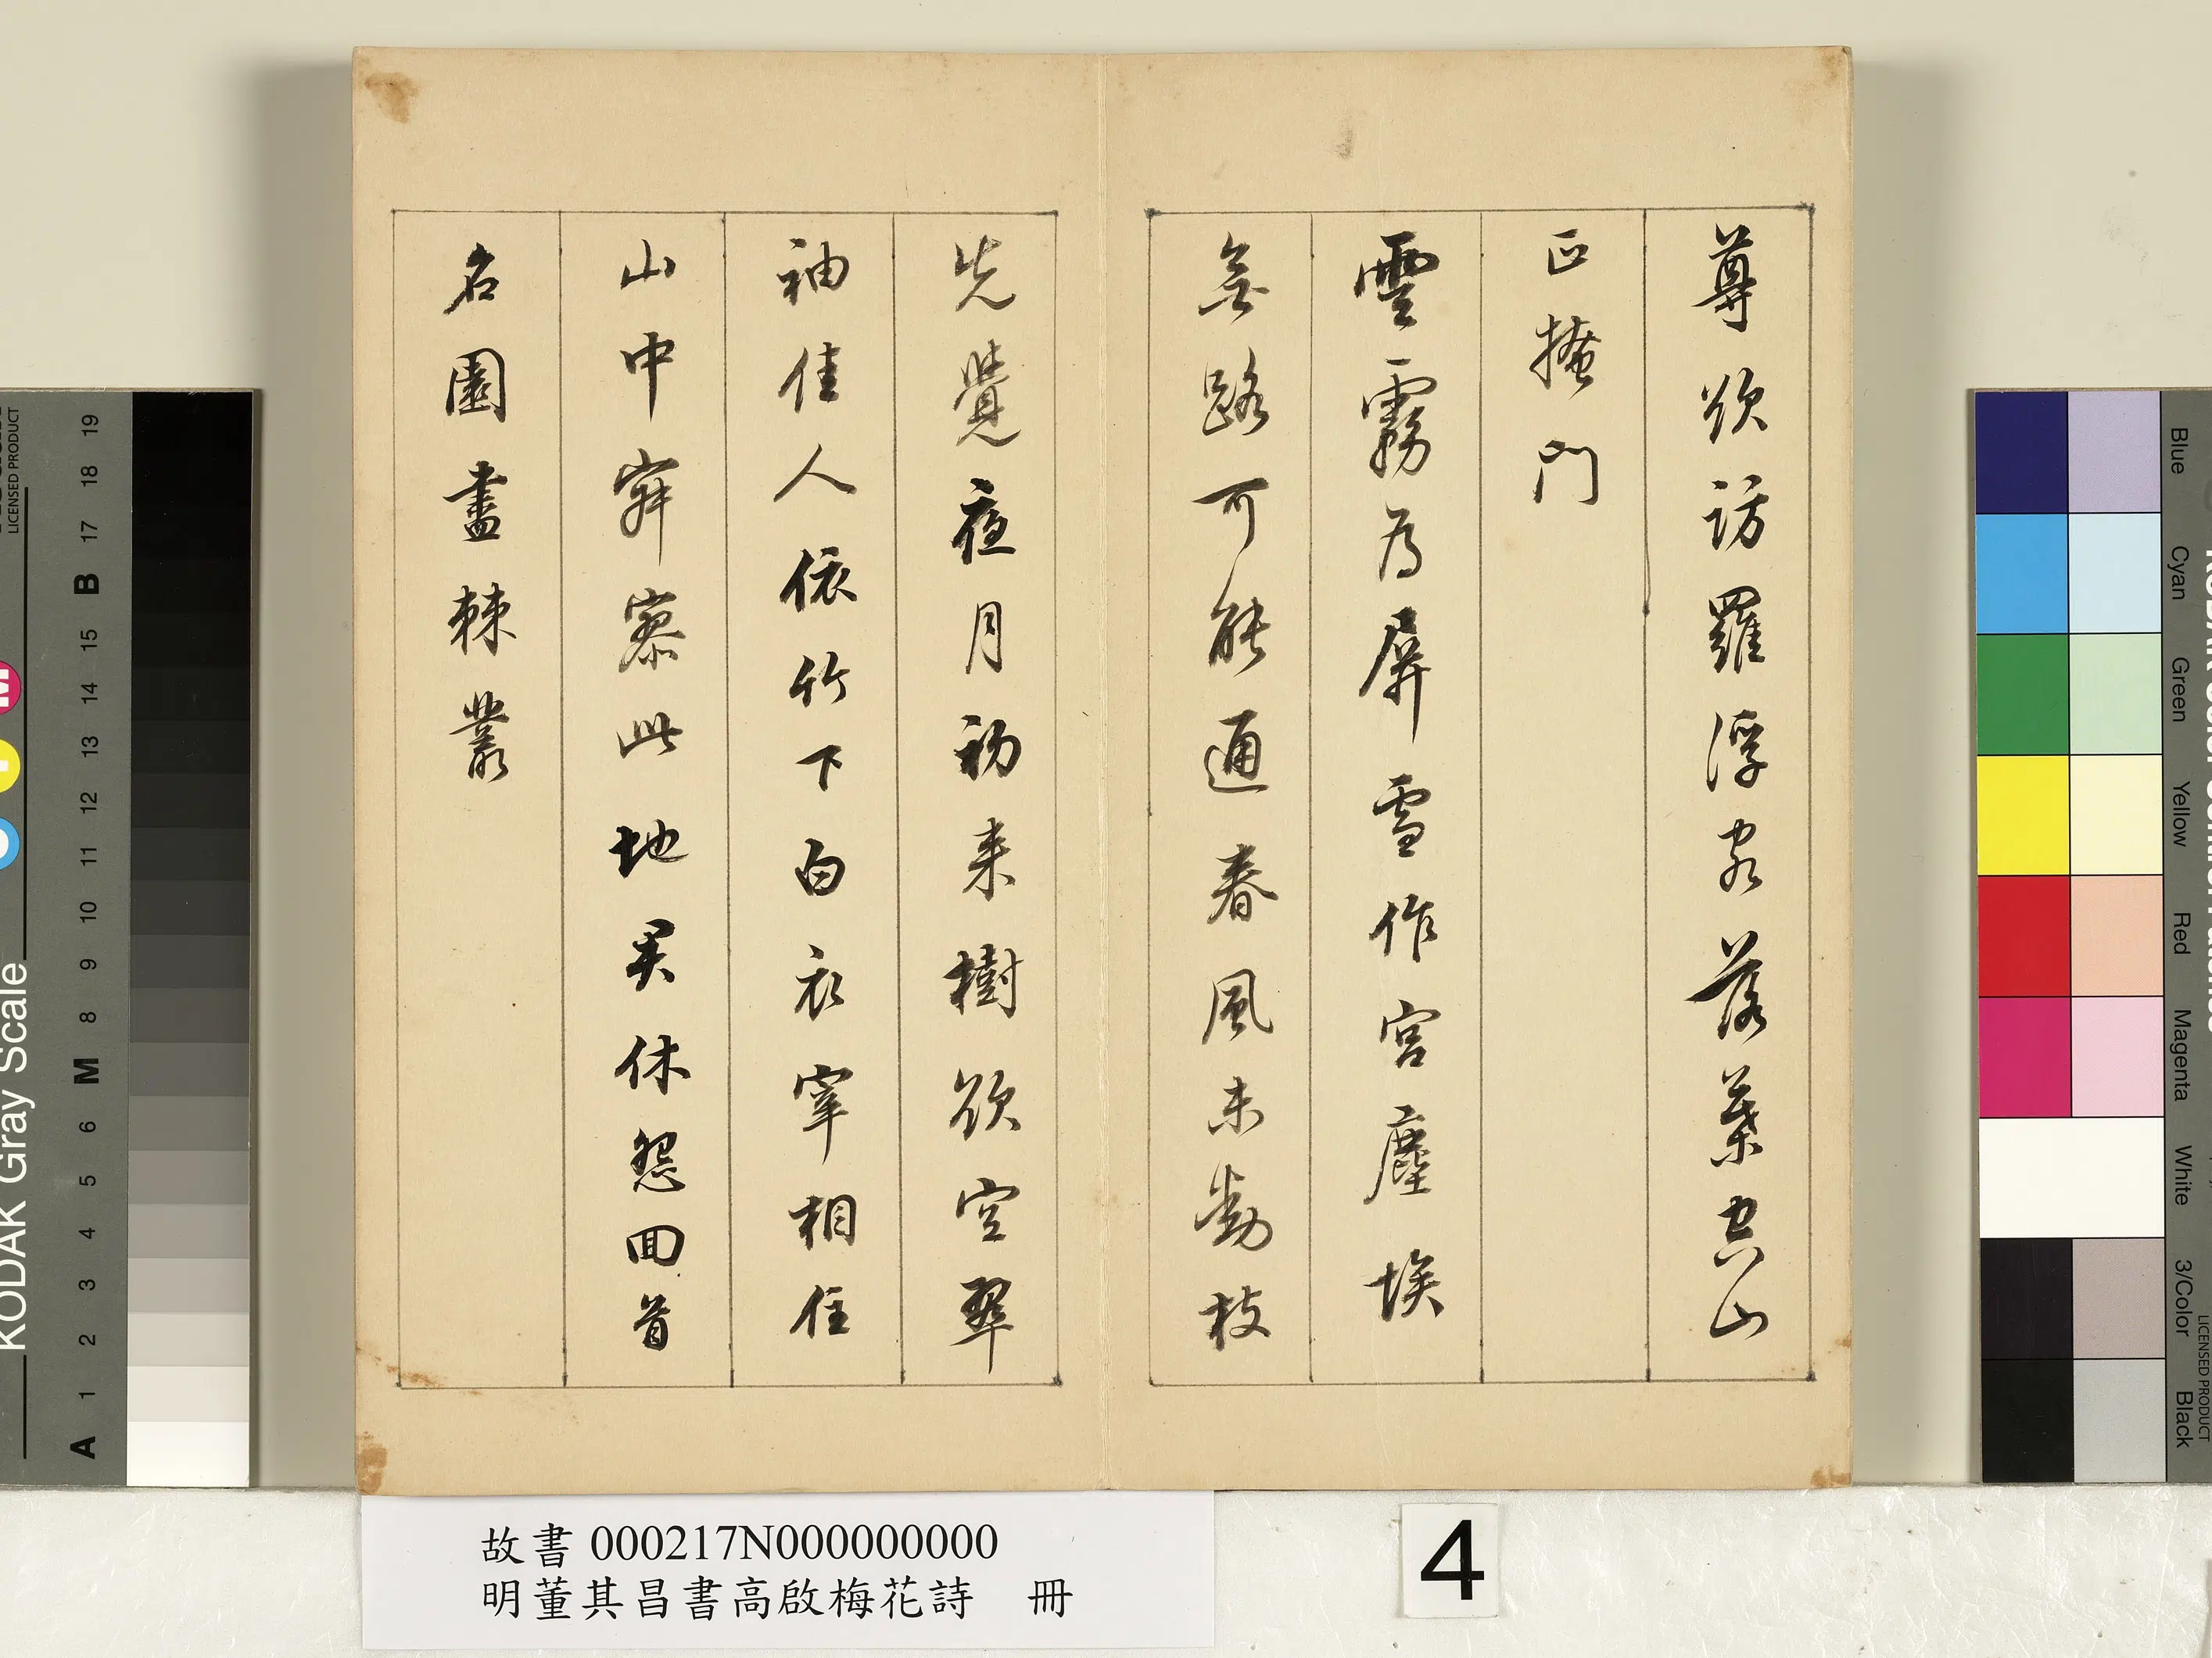 尊欲訪羅浮客落葉空山
正掩門
雲霧為屏雪作宮塵埃
無路可能通春風未動枝
先覺夜月初來樹欲空翠
袖佳人依竹下白衣宰相住
山中寂寥此地君休怨回首
名園盡棘叢
故書 000217N000000000
明董其昌書高啟梅花詩 冊
4
KODAK Gray Scale
LICENSED PRODUCT
A 1 2 3 4 5 6 M 8 9 10 11 12 13 14 15 B 17 18 19
Blue
Cyan
Green
Yellow
Red
Magenta
White
3/Color
Black
LICENSED PRODUCT